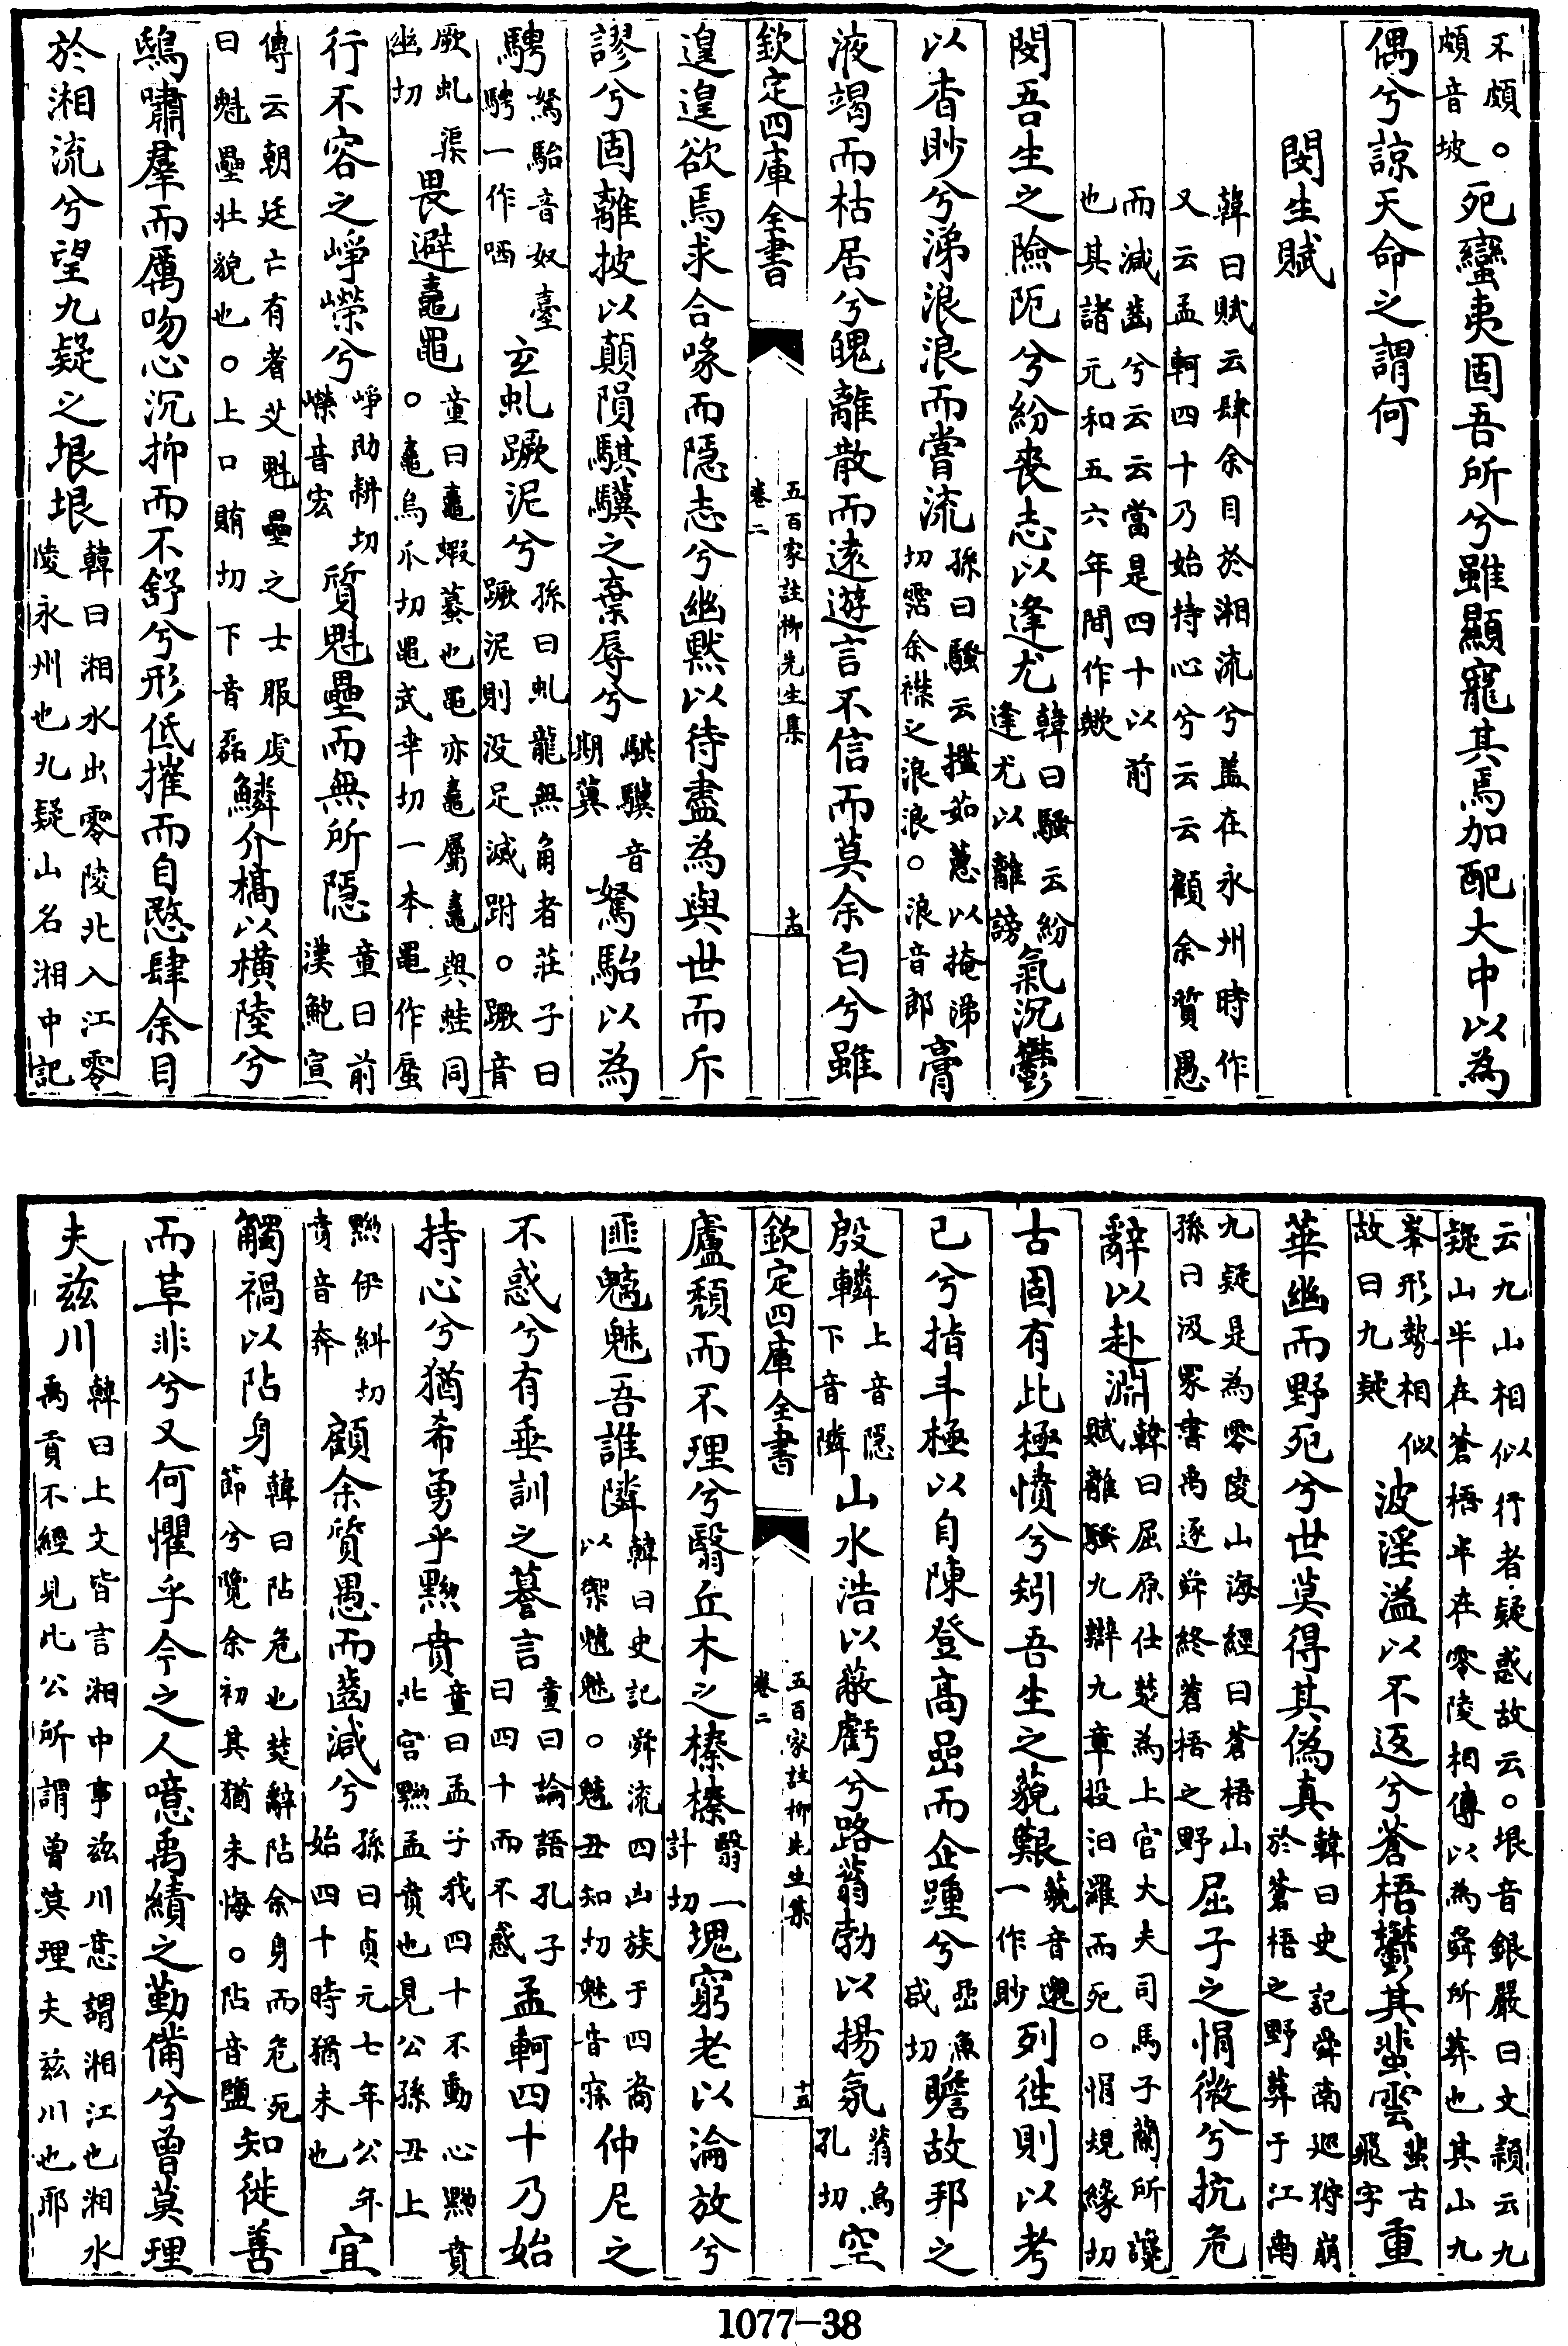 不頗。
頗音坡
死蠻夷固吾所兮雖顯寵其焉加配大中以為
偶兮諒天命之謂何
閔生賦
韓曰賦云肆余目於湘流兮蓋在永州時作
又云孟軻四十乃始持心兮云云顧余質愚
而減齒兮云云當是四十以前
也其諸元和五六年間作歟
閔吾生之險阨兮紛喪志以逢尤
韓曰騷云紛
逢尤以離謗
氣沉鬱
以杳眇兮涕浪浪而嘗流
孫曰騷云攬茹蕙以掩涕
切霑余襟之浪浪。浪音郎
膏
液竭而枯居兮魄離散而遠遊言不信而莫余白兮雖
欽定四庫全書
五百家註柳先生集
卷二
十四
遑遑欲焉求合喙而隱志兮幽默以待盡為與世而斥
謬兮固離披以顛隕騏驥之棄辱兮
騏驥音
期冀
駑駘以為
騁
駑駘音奴臺
騁一作哂
玄虬蹶泥兮
孫曰虬龍無角者莊子曰
蹶泥則没足滅跗。蹶音
厥虬渠
幽切
畏避鼃黽
童曰鼃蝦蟇也黽亦鼃屬鼃與蛙同
。鼃烏爪切黽武幸切一本黽作蜃
行不容之崢嶸兮
崢助耕切
嶸音宏
質魁壘而無所隱
童曰前
漢鮑宣
傳云朝廷亡有者艾魁壘之士服虔
曰魁壘壯貌也。上口賄切下音磊
鱗介槁以横陸兮
鴟嘯羣而厲吻心沉抑而不舒兮形低摧而自愍肆余目
於湘流兮望九疑之垠垠
韓曰湘水出零陵北入江零
陵永州也九疑山名湘中記
云九山相似行者疑惑故云。垠音銀嚴曰文頴云九
疑山半在蒼梧半在零陵相傳以為舜所葬也其山九
峯形勢相似
故曰九疑
波淫溢以不返兮蒼梧鬱其蜚雲
蜚古
飛字
重
華幽而野死兮世莫得其偽真
韓曰史記舜南廵狩崩
於蒼梧之野葬于江南
九疑是為零陵山海經曰蒼梧山
孫曰汲冢書禹逐舜終蒼梧之野
屈子之悁微兮抗危
辭以赴淵
韓曰屈原仕楚為上官大夫司馬子蘭所讒
賦離騷九辯九章投汨羅而死。悁規緣切
古固有此極憤兮矧吾生之藐艱
藐音邈
一作眇
列徃則以考
已兮指斗極以自陳登高嵒而企踵兮
嵒魚
咸切
瞻故邦之
殷轔
上音隱
下音隣
山水浩以蔽虧兮路蓊勃以揚氛
蓊烏
孔切
空
欽定四庫全書
五百家註柳先生集
卷二
十五
廬頽而不理兮翳丘木之榛榛
翳一
計切
塊窮老以淪放兮
匪魑魅吾誰隣
韓曰史記舜流四凶族于四裔
以禦魑魅。魑丑知切魅音寐
仲尼之
不惑兮有垂訓之謩言
童曰論語孔子
曰四十而不惑
孟軻四十乃始
持心兮猶希勇乎黝賁
童曰孟子我四十不動心黝賁
北宮黝孟賁也見公孫丑上
黝伊糾切
賁音奔
顧余質愚而齒減兮
孫曰貞元七年公年
始四十時猶未也
宜
觸禍以阽身
韓曰阽危也楚辭阽余身而危死
節兮覽余初其猶未悔。阽音鹽
知徙善
而革非兮又何懼乎今之人噫禹績之勤備兮曾莫理
夫茲川
韓曰上文皆言湘中事茲川意謂湘江也湘水
禹貢不經見此公所謂曾莫理夫茲川也耶
1077-38